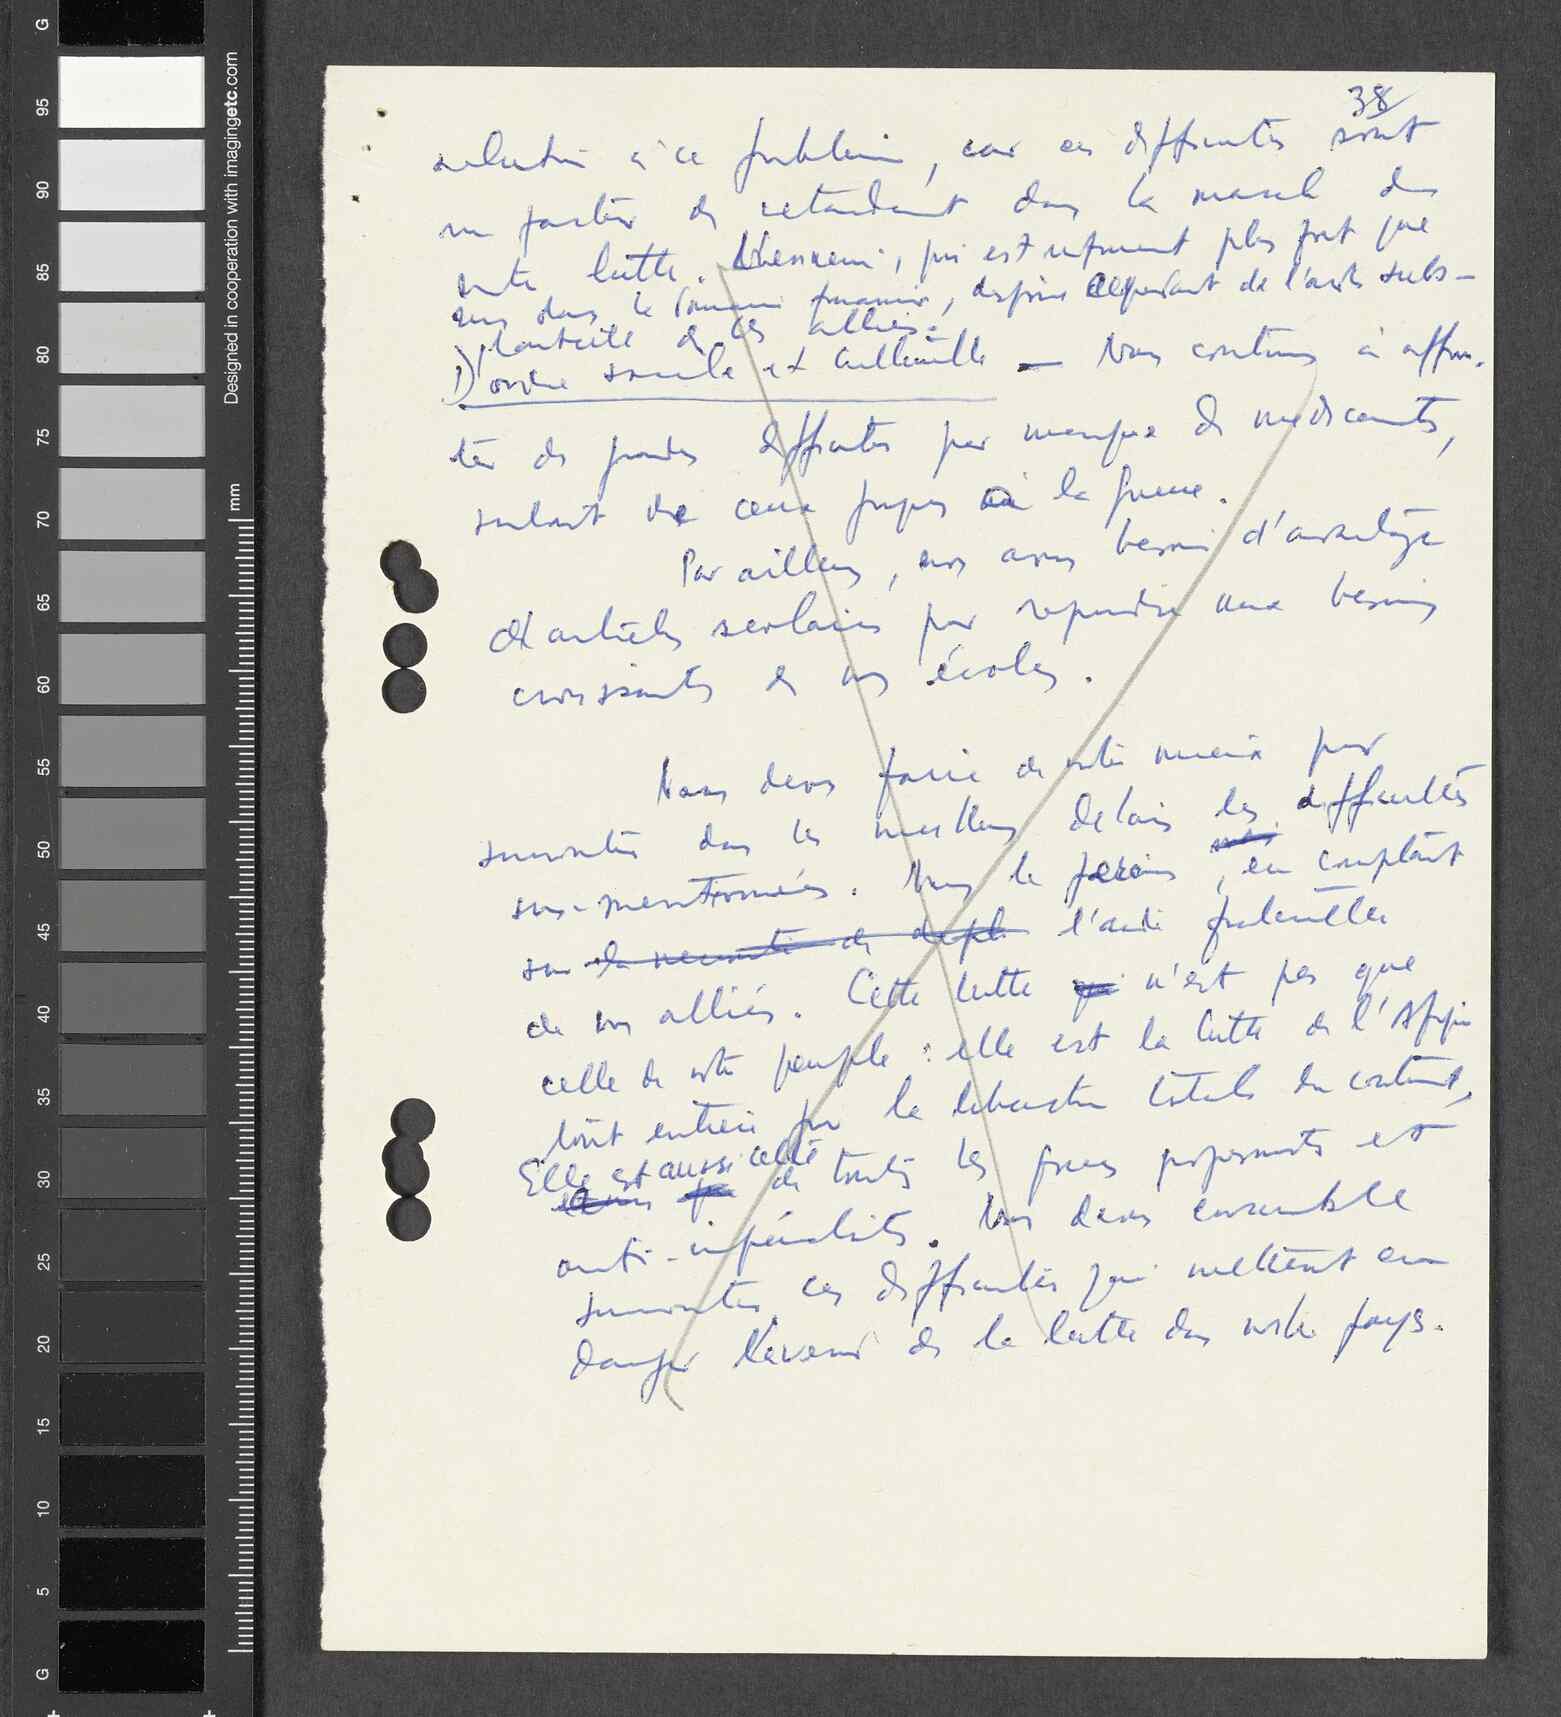 38
solution à ce problème, car ces difficultés sont
un facteur de retardement dans la marche de
notre lutte. L'ennemi, qui est infiniment plus fort que
nous dans le domaine financier, dispose cependant de l'aide subs-
tantielle de ses alliés.
D) d'ordre sociale et culturelle — Nous continuons à affron-
ter de grandes difficultés par manque de médicaments,
surtout de ceux propres à la guerre.
Par ailleurs, nous avons besoin d'avantage
d'articles scolaires pour répondre aux besoins
croissants de nos écoles.
Nous devons faire de notre mieux pour
surmonter dans les meilleurs délais les difficultés
sus-mentionnées. Nous le ferons, en comptant
sur la nécessité de l'aide fraternelle
de nos alliés. Cette lutte qui n'est pas que
celle de notre peuple : elle est la lutte de l'Afrique
tout entière pour la libération totale du continent,
Elle est aussi celle de toutes les forces progressistes et
anti-impérialistes. Nous devons ensemble
surmonter ces difficultés qui mettent en
danger l'avenir de la lutte dans notre pays.
Designed in cooperation with imagingetc.com
mm
G
95
90
85
80
75
70
65
60
55
50
45
40
35
30
25
20
15
10
5
G